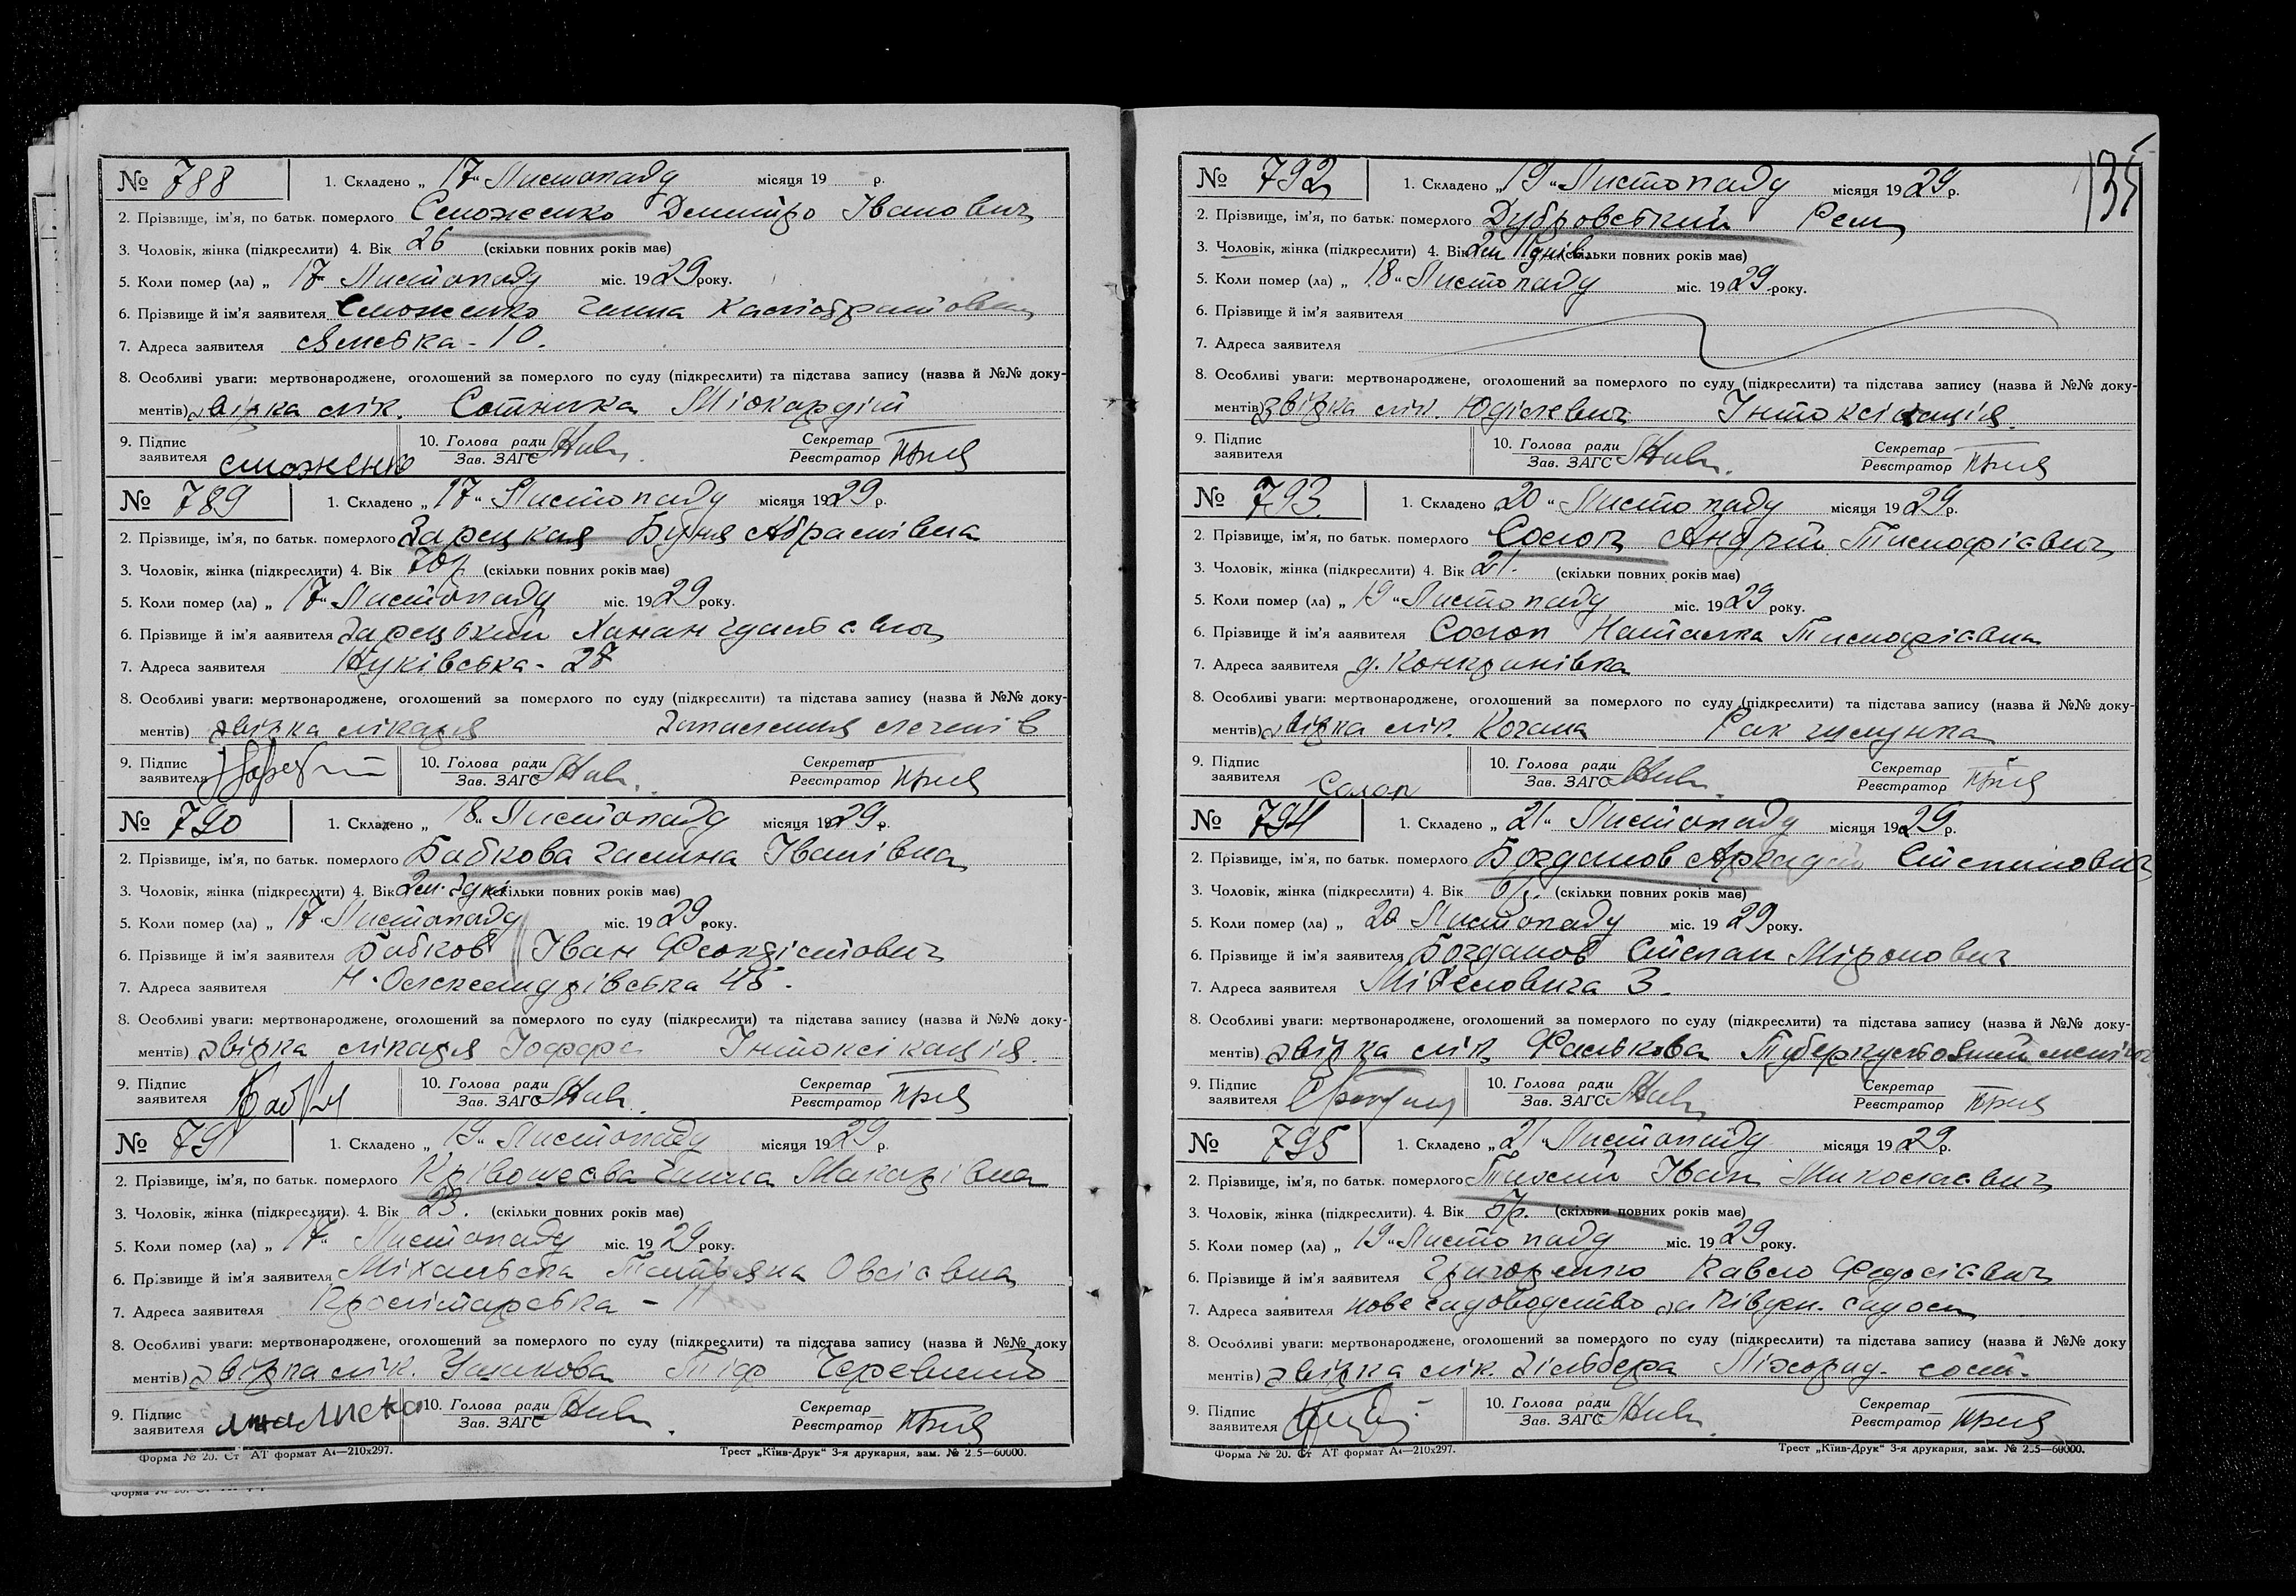 № 788 1. Складено „ 17 “ Листопаду місяця 19 р.
2. Прізвище, ім'я, по батьк. померлого Сможенко Дмитро Іванович
3. Чоловік, жінка (підкреслити) 4. Вік 26 (скільки повних років має)
5. Коли помер (ла) „ 17 Листопаду міс. 1929 року.
6. Прізвище й ім'я заявителя Сможенко
7. Адреса заявителя Ямська - 10.
8. Особливі уваги: мертвонароджене, оголошений за померлого по суду (підкреслити) та підстава запису (назва й №№ доку-
ментів) звідка лік. Сотника Міокардіт
9. Підпис заявителя сможенко 10. Голова ради Зав. ЗАГС Секретар Реєстратор
№ 789 1. Складено „ 17 “ Листопаду місяця 1929 р.
2. Прізвище, ім'я, по батьк. померлого Зарецкая Буня Абрамівна
3. Чоловік, жінка (підкреслити) 4. Вік 70 р. (скільки повних років має)
5. Коли помер (ла) „ 17 “ Листопаду міс. 1929 року.
6. Прізвище й ім'я заявителя Зарецький Ханан
7. Адреса заявителя - 27
8. Особливі уваги: мертвонароджене, оголошений за померлого по суду (підкреслити) та підстава запису (назва й №№ доку-
ментів) звідка лікаря Запалення легенів
9. Підпис заявителя 10. Голова ради Зав. ЗАГС Секретар Реєстратор
№ 790 1. Складено „ 18 “ Листопаду місяця 1929 р.
2. Прізвище, ім'я, по батьк. померлого Бабкова Галина Іванівна
3. Чоловік, жінка (підкреслити) 4. Вік 2 м. 3 дні (скільки повних років має)
5. Коли помер (ла) „ 17 “ Листопаду міс. 1929 року.
6. Прізвище й ім'я заявителя Бабков Іван Феоктістович
7. Адреса заявителя Н. Олександрівська 45.
8. Особливі уваги: мертвонароджене, оголошений за померлого по суду (підкреслити) та підстава запису (назва й №№ доку-
ментів) звідка лікаря Іоффе Інтоксікація.
9. Підпис заявителя 10. Голова ради Зав. ЗАГС Секретар Реєстратор
№ 791 1. Складено „ 19 “ Листопаду місяця 1929 р.
2. Прізвище, ім'я, по батьк. померлого Крівошеєва Ганна Макарівна
3. Чоловік, жінка (підкреслити). 4. Вік 23. (скільки повних років має)
5. Коли помер (ла) „ 17 “ Листопаду міс. 1929 року.
6. Прізвище й ім'я заявителя Міхальска Тетьяна Овсіівна
7. Адреса заявителя - 11
8. Особливі уваги: мертвонароджене, оголошений за померлого по суду (підкреслити) та підстава запису (назва й №№ доку
ментів) звідка лік. Ушакова Тіф Черевний
9. Підпис заявителя 10. Голова ради Зав. ЗАГС Секретар Реєстратор
Форма № 20. Ст АТ формат А4—210х297. Трест „Київ-Друк“ 3-я друкарня, зам. № 225—60000.
135
№ 792 1. Складено „ 19 “ Листопаду місяця 1929 р.
2. Прізвище, ім'я, по батьк. померлого Дубровський Рем
3. Чоловік, жінка (підкреслити) 4. Вік 2 м 11 днів (скільки повних років має)
5. Коли помер (ла) „ 18 “ Листопаду міс. 1929 року.
6. Прізвище й ім'я заявителя
7. Адреса заявителя
8. Особливі уваги: мертвонароджене, оголошений за померлого по суду (підкреслити) та підстава запису (назва й №№ доку-
ментів) звідка лік. Юділевич Інтоксікація.
9. Підпис заявителя 10. Голова ради Зав. ЗАГС Секретар Реєстратор
№ 793 1. Складено 20 “ Листопаду місяця 1929 р.
2. Прізвище, ім'я, по батьк. померлого Солоп Андрій Тимофієвич
3. Чоловік, жінка (підкреслити) 4. Вік 21. (скільки повних років має)
5. Коли помер (ла) „ 19 “ Листопаду міс. 1929 року.
6. Прізвище й ім'я заявителя Солоп Наталка Тимофієвна
7. Адреса заявителя д. Кондранівка
8. Особливі уваги: мертвонароджене, оголошений за померлого по суду (підкреслити) та підстава запису (назва й №№ доку-
ментів) звідка лік. Когана Рак шлунка
9. Підпис заявителя Солоп 10. Голова ради Зав. ЗАГС Секретар Реєстратор
№ 794 1. Складено „ 21 “ Листопаду місяця 1929 р.
2. Прізвище, ім'я, по батьк. померлого Богданов Аркадій Степанович
3. Чоловік, жінка (підкреслити) 4. Вік (скільки повних років має)
5. Коли помер (ла) „ 20 Листопаду міс. 1929 року.
6. Прізвище й ім'я заявителя Богданов Степан Міронович
7. Адреса заявителя Міхеловича 3.
8. Особливі уваги: мертвонароджене, оголошений за померлого по суду (підкреслити) та підстава запису (назва й №№ доку-
ментів) звідка лік. Фалькова Туберкульозний менінгіт
9. Підпис заявителя 10. Голова ради Зав. ЗАГС Секретар Реєстратор
№ 795 1. Складено „ 21 “ Листопаду місяця 1929 р.
2. Прізвище, ім'я, по батьк. померлого Тихий Іван Миколаєвич
3. Чоловік, жінка (підкреслити). 4. Вік 5 р. (скільки повних років має)
5. Коли помер (ла) „ 19 “ Листопаду міс. 1929 року.
6. Прізвище й ім'я заявителя Григоренко Павло Федосієвич
7. Адреса заявителя нове садоводство за Півден. садом
8. Особливі уваги: мертвонароджене, оголошений за померлого по суду (підкреслити) та підстава запису (назва й №№ доку
ментів) звідка лік. Гільбера
9. Підпис заявителя 10. Голова ради Зав. ЗАГС Секретар Реєстратор
Форма № 20. Ст АТ формат А4—210х297. Трест „Київ-Друк“ 3-я друкарня, зам. № 225—60000.